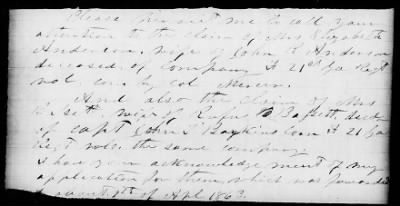 Please permit me to call your
attention to the claim of Mrs Elizabeth
Anderson, wife of John H Anderson
deceased, of Company H 21st Ga Regt
vol. com by Col Mercer.
And also the claim of Mrs
wife of Rufus Bassett, decd
of Capt John Boykins Com H 21 Ga
Regt vols. the same company
I have your acknowledgement of my
application for them which was forwarded
about 1st of Apl 1863.